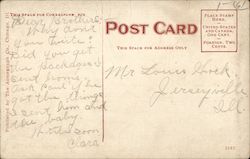 1-6
THIS SPACE FOR CORRESPONDENCE
POST CARD
THIS SPACE FOR ADDRESS ONLY
PLACE STAMP
HERE
UNITED STATES
AND CANADA,
ONE CENT
FOREIGN, TWO
CENTS
Dear Brother:
Why don't
you write?
Did you get
the packages I
sent home,
ask Paul if he
got the things
I sent him and
the baby.
Write soon
Clara
Mr Louis
Jerseyville
Ill.